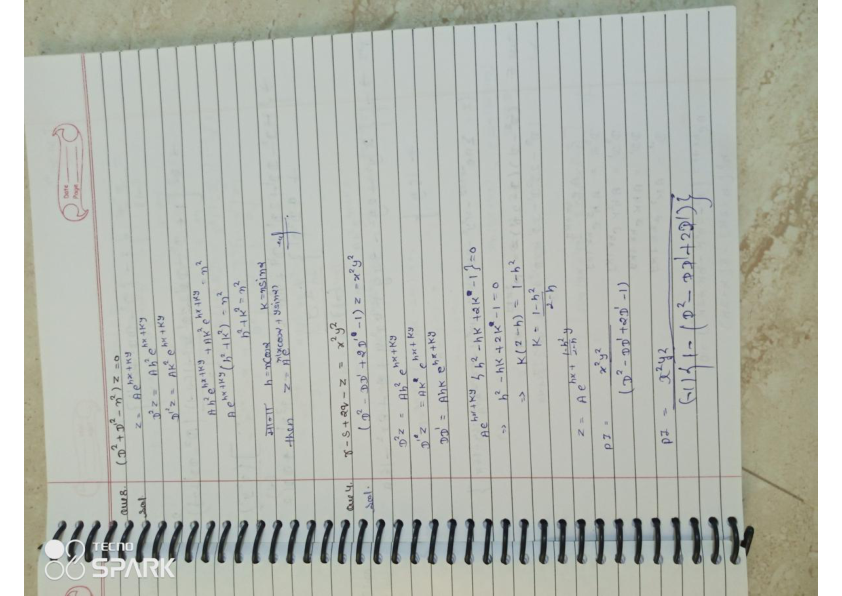 Date
Page
Que 3. (D² + D'² - n²) z = 0
Sol z = Ae^{hx+ky}
D²z = Ah² e^{hx+ky}
D'²z = Ak² e^{hx+ky}
Ah² e^{hx+ky} + Ak² e^{hx+ky} = n²
Ae^{hx+ky} (h² + k²) = n²
h² + k² = n²
माना h = ncosα k = nsinα
then z = Ae^{n(xcosα + ysinα)}
Que 4. r - s + 2q - z = x²y²
Sol. (D² - DD' + 2D' - 1) z = x²y²
D²z = Ah² e^{hx+ky}
D'z = Ak e^{hx+ky}
DD' = Ahk e^{hx+ky}
Ae^{hx+ky} {h² - hk + 2k - 1} = 0
⇒ h² - hk + 2k - 1 = 0
⇒ k(2-h) = 1-h²
k = \frac{1-h²}{2-h}
z = Ae^{hx + \frac{1-h²}{2-h} y}
PI = \frac{x²y²}{(D² - DD' + 2D' - 1)}
PI = \frac{x²y²}{(-1){1 - (D² - DD' + 2D')}}
TECNO
SPARK